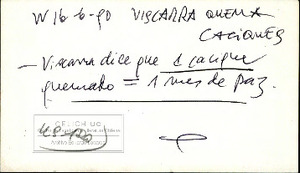 W 16-6-90 VISCARRA QUEMA
CACIQUES
— Viscarra dice que 1 cacique
quemado = 1 mes de paz.